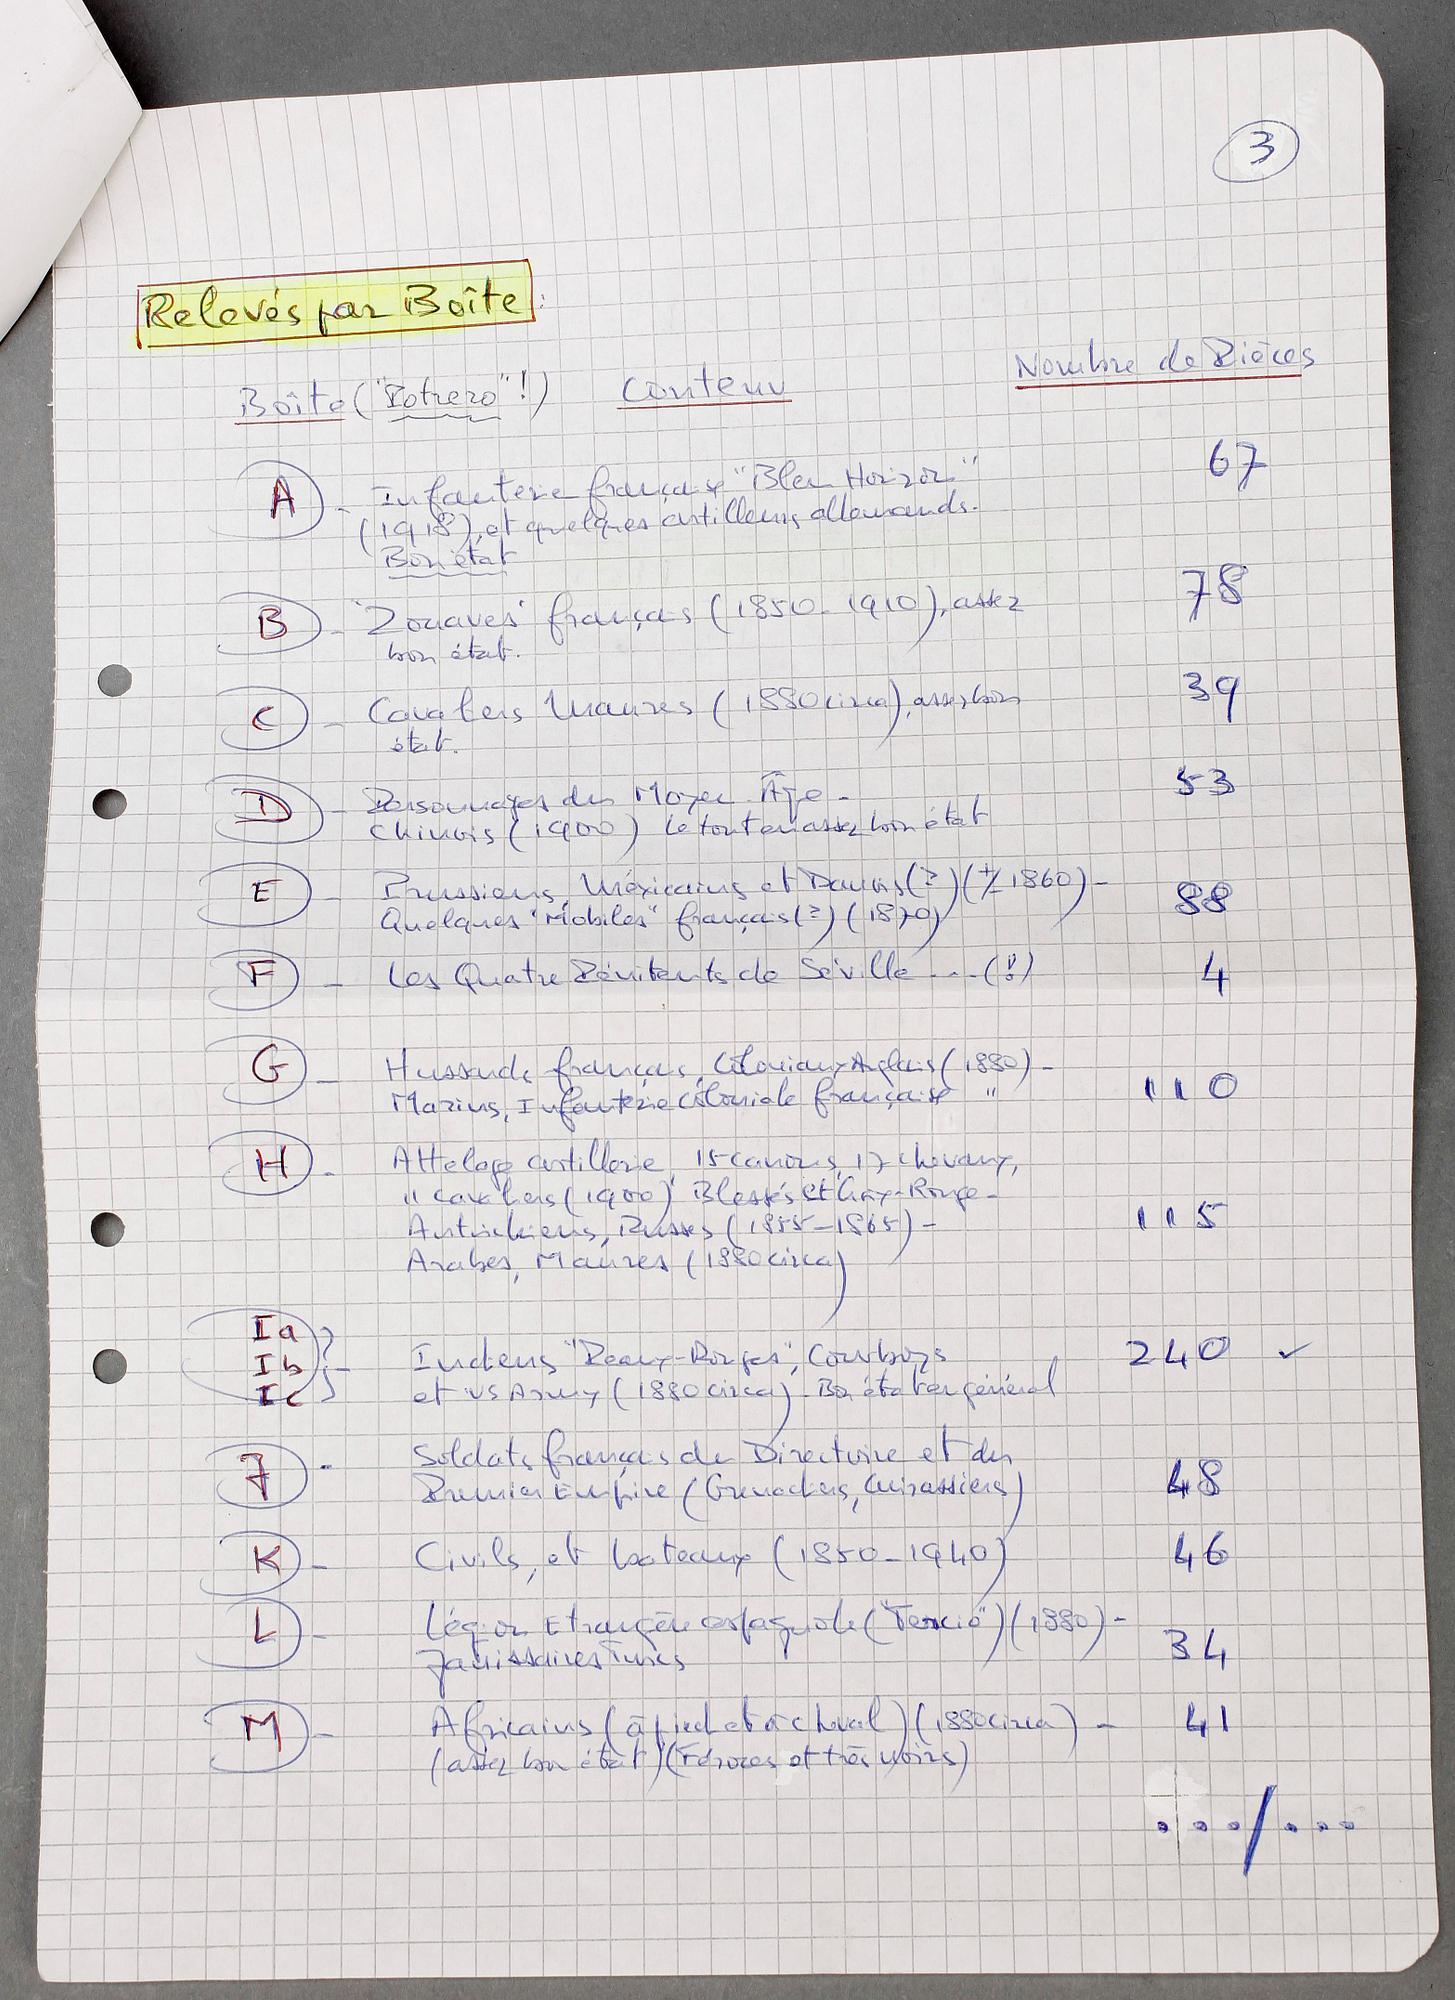 3
Relevés par Boîte :
Nombre de Pièces
Boîte ("Potrero"!) Contenu
A - Infanterie française "Bleu Horizon" 67
(1918), et quelques artilleurs allemands.
Bon état
B - "Zouaves" français (1850-1910), assez 78
bon état.
C - Cavaliers Maures (1880 circa), assez bon 39
état.
D - Personnages du Moyen Âge - 53
Chinois (1900) Le tout en assez bon état
E - Prussiens, Mexicains et Danois (?) (+/- 1860) - 88
Quelques "Mobiles" français (?) (1870)
F - Les Quatre Pénitents de Séville ---- (!) 4
G - Hussards français, Coloniaux Anglais (1880) -
Marins, Infanterie Coloniale française " 110
H - Attelage artillerie, 15 canons, 17 chevaux,
11 cavaliers (1900) Blessés et Croix-Rouge -
Autrichiens, Russes (1855-1865) - 115
Arabes, Maures (1880 circa)
Ia
Ib - Indiens "Peaux-Rouges", Cowboys 240 ✓
Ic et US Army (1880 circa) - Bon état en général
J - Soldats français du Directoire et du
Premier Empire (Grenadiers, Cuirassiers) 48
K - Civils, et bateaux (1850-1940) 46
L - Légion Etrangère espagnole ("Tercio") (1880) -
Janissaires Turcs 34
M - Africains (à pied et à cheval) (1880 circa) - 41
(assez bon état) (Féroces et très noirs)
.../...